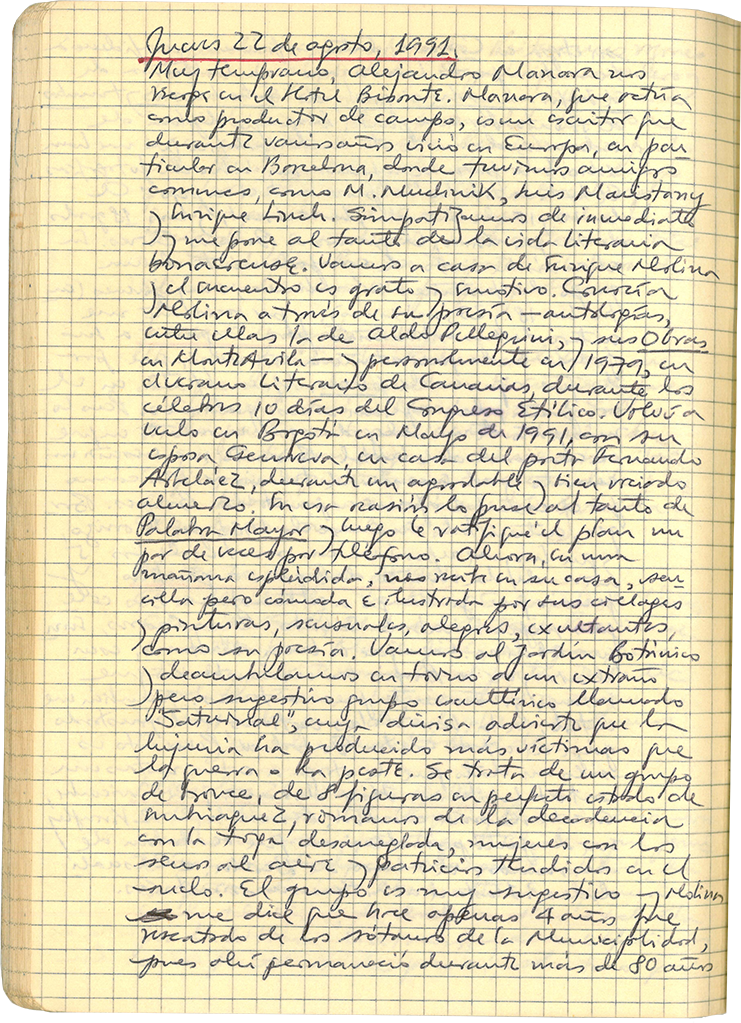 Jueves 22 de agosto, 1991.
Muy temprano, Alejandro Manara nos
recoge en el Hotel Bisonte. Manara, que actúa
como productor de campo, es un escritor que
durante varios años vivió en Europa, en par-
ticular en Barcelona, donde tuvimos amigos
comunes, como M. Muchnik, Luis Maristany
y Enrique Linch. Simpatizamos de inmediato
y me pone al tanto de la vida literaria
bonaerense. Vamos a casa de Enrique Molina
y el encuentro es grato y emotivo. Conocía
a Molina a través de su poesía —antologías,
entre ellas la de Aldo Pellegrini, y sus Obras
en Monte Avila— y personalmente en 1979, en
el verano literario de Canarias, durante los
célebres 10 días del Congreso Etílico. Volví a
verlo en Bogotá en Mayo de 1991, con su
esposa Genoveva, en casa del poeta Fernando
Arbeláez, durante un agradable y bien rociado
almuerzo. En esa ocasión lo puse al tanto de
Palabra Mayor y luego le ratifiqué el plan un
par de veces por teléfono. Ahora, en una
mañana espléndida, nos recibe en su casa, sen-
cilla pero cómoda e ilustrada por sus collages
y pinturas, sensuales, alegres, exultantes,
como su poesía. Vamos al Jardín Botánico
y deambulamos en torno a un extraño
pero sugestivo grupo escultórico llamado
"Saturnal", cuya divisa advierte que la
lujuria ha producido más víctimas que
la guerra o la peste. Se trata de un grupo
de bronce, de 8 figuras en perfecto estado de
embriaguez, romanos de la decadencia
con la toga desarreglada, mujeres con los
senos al aire y patricios tendidos en el
suelo. El grupo es muy sugestivo y Molina
me dice que hace apenas 4 años fue
rescatado de los sótanos de la Municipalidad,
pues ahí permaneció durante más de 80 años